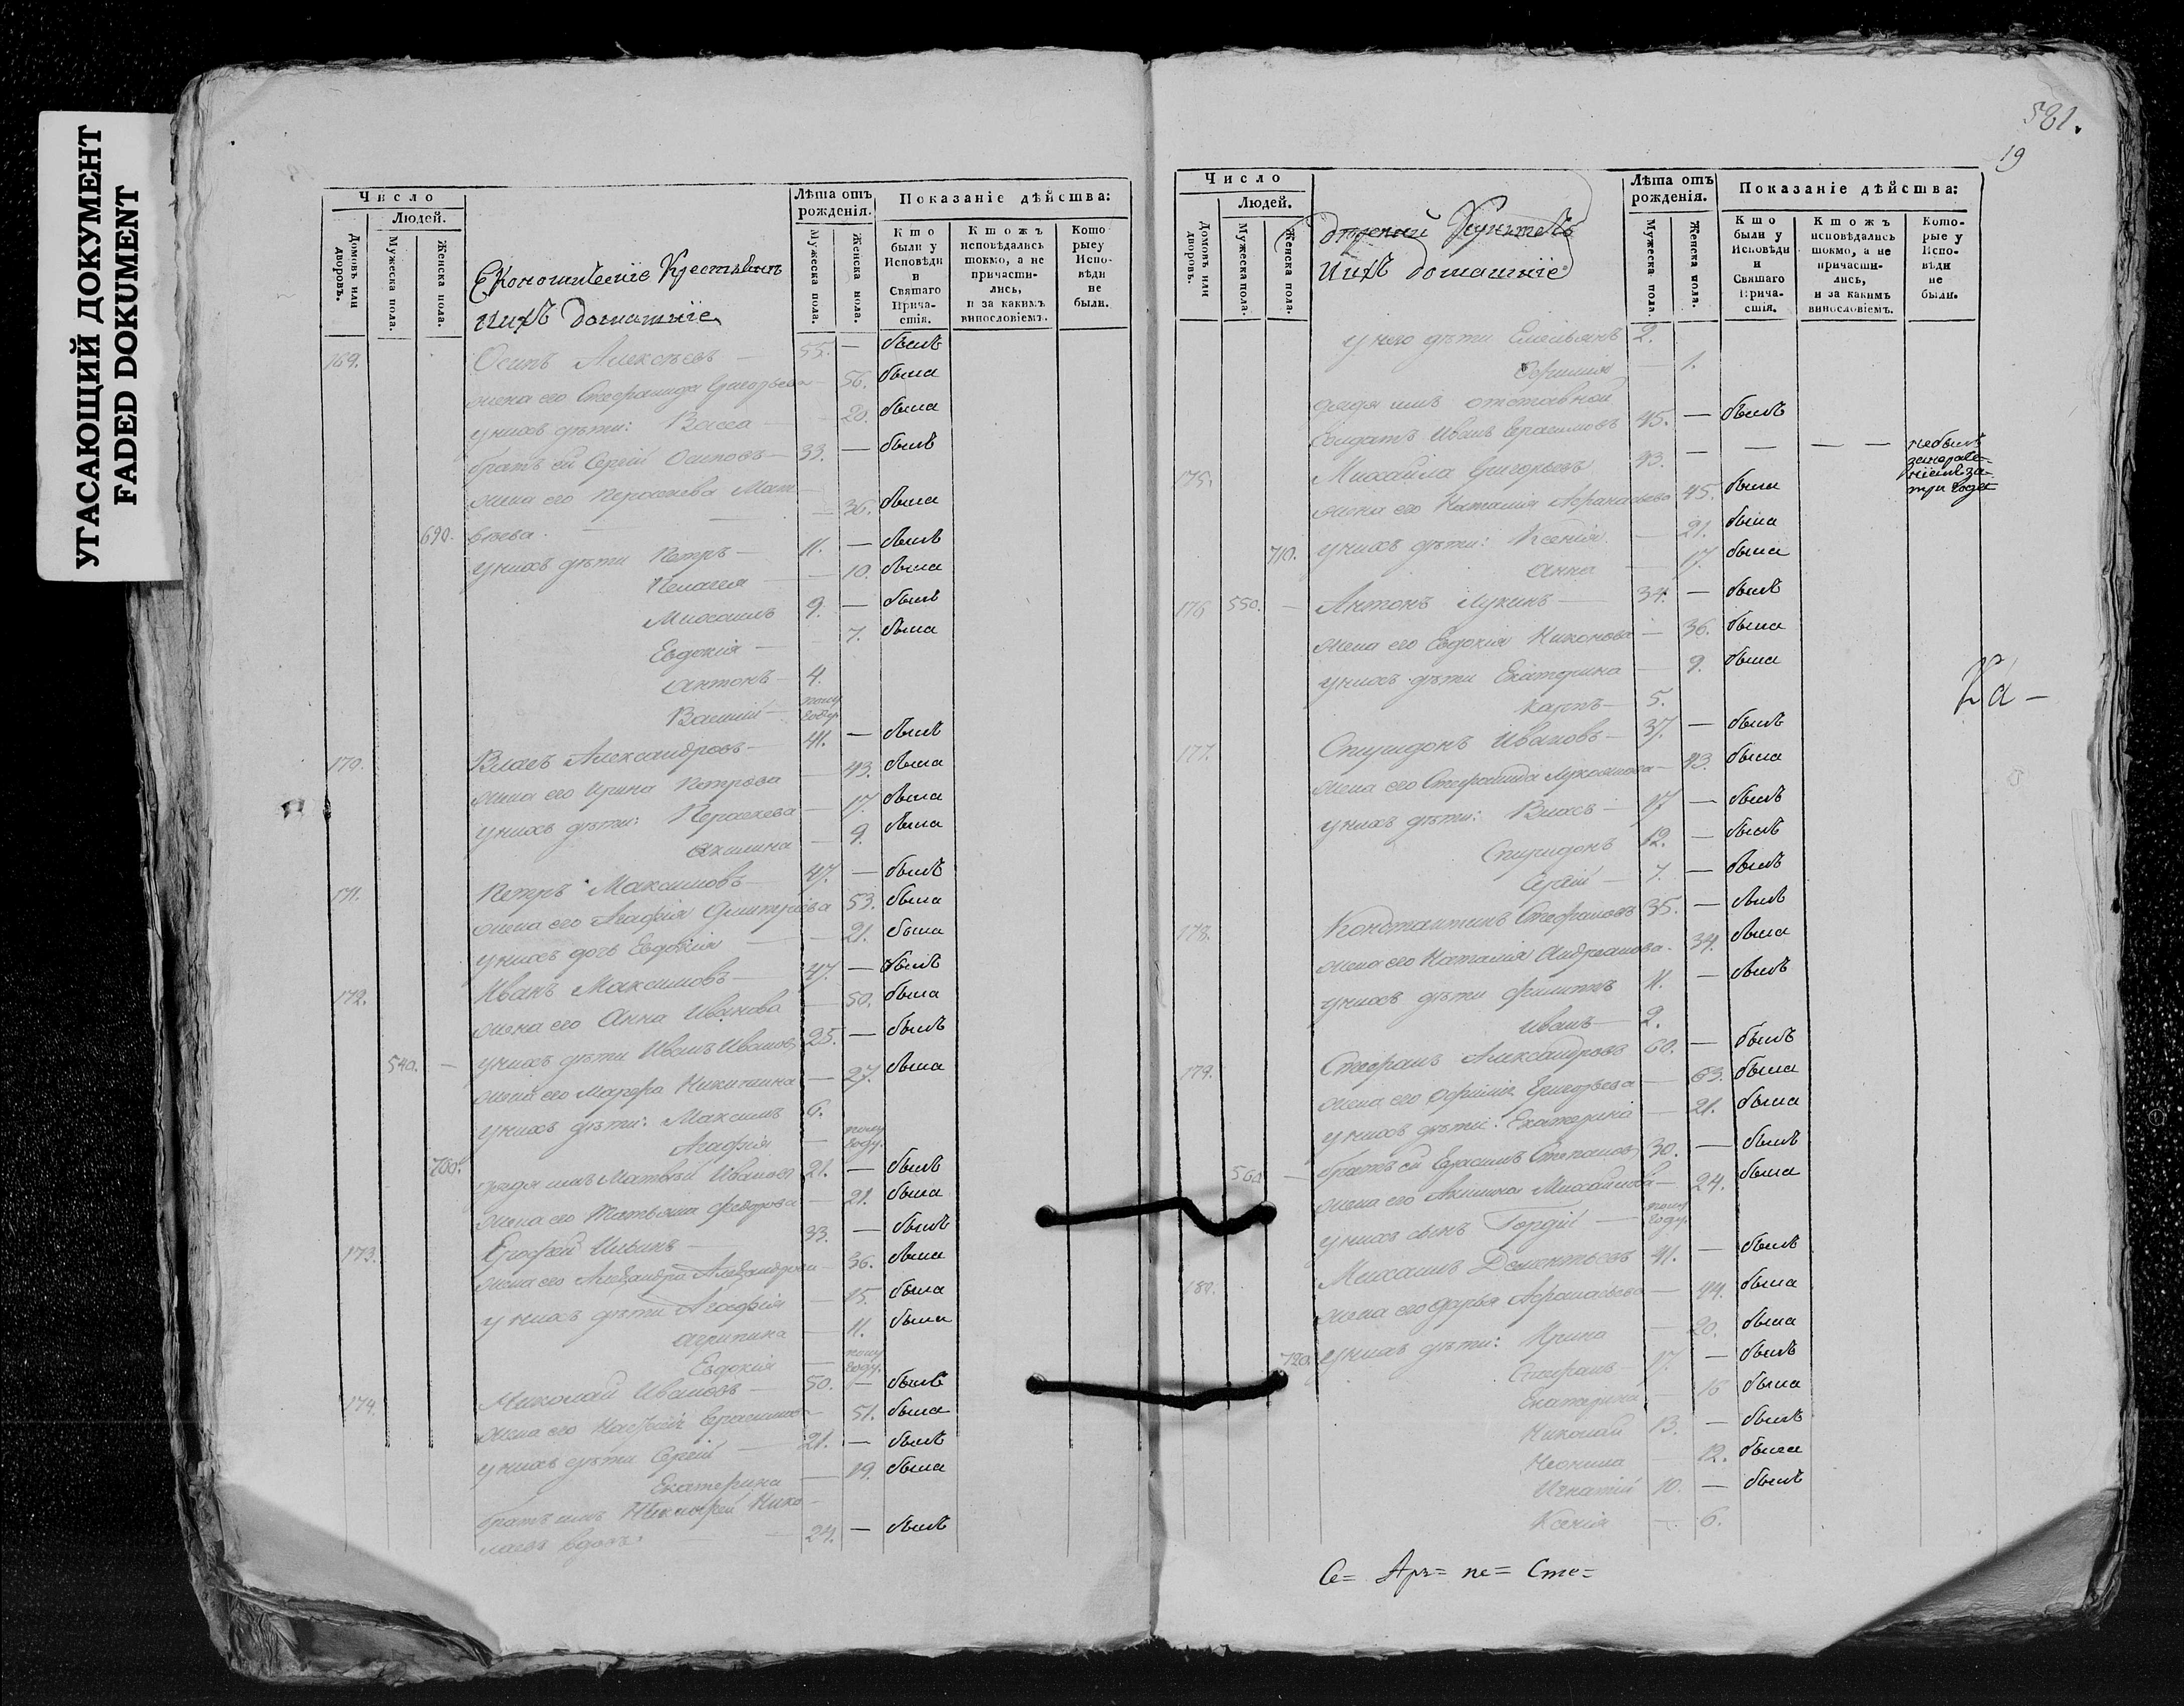 УГАСАЮЩИЙ ДОКУМЕНТ
FADED DOKUMENT
Число
Людей.
Домовъ или дворовъ.
Мужеска пола.
Женска пола.
Крестьянъ
ихъ домашнiе
Лѣта отъ рожденiя.
Мужеска пола.
Женска пола.
Показанiе дѣйства:
Кто были у Исповѣди и Святаго Причастiя.
Ктожъ исповѣдались токмо, а не причастились, и за какимъ винословiемъ.
Которыеу Исповѣди не были.
169. Осипъ Алексѣевъ — 55. — былъ
жена его Стефанида Григорьева 56. была
у нихъ дѣти: Васса — 20. была
братъ ей Сергiй Осиповъ — 33. — былъ
жена его Параскева Мат-
690. вѣева — 36. была
у нихъ дѣти Петръ — 11. — былъ
Пелагея — 10. была
Михаилъ 9. — былъ
Евдокiя — 7. была
Антонъ — 4.
Василiй — полу году.
170. Власъ Александровъ — 41. — былъ
жена его Ирина Петрова — 43. была
у нихъ дѣти: Параскева — 17. была
Акилина — 9. была
171. Петръ Максимовъ — 47. — былъ
жена его Агафiя Дмитрiева 53. была
у нихъ дочь Евдокiя — 21. была
172. Иванъ Максимовъ — 47. — былъ
жена его Анна Иванова — 50. была
540. — у нихъ дѣти Иванъ Ивановъ 25. — былъ
жена его Марфа Никитина — 27. была
у нихъ дѣти: Максимъ 6.
700. Агафiя — полу году.
дядя имъ Матвѣй Ивановъ 21. — былъ
жена его Татьяна Федорова — 21. была
173. Ерофѣй — 33. — былъ
жена его Александра Александрова — 36. была
у нихъ дѣти Агафiя — 15. была
Агрипина — 11. была
Евдокiя — полу году.
174. Николай Ивановъ — 50. — былъ
жена его Герасимова — 51. была
у нихъ дѣти Сергiй — 21. — былъ
Екатерина — 19. была
братъ имъ Никифоръ Нико-
лаевъ вдовъ — 24. — былъ
581.
19
Число
Людей.
Домовъ или дворовъ.
Мужеска пола.
Женска пола.
ихъ домашнiе
Лѣта отъ рожденiя.
Мужеска пола.
Женска пола.
Показанiе дѣйства:
Кто были у Исповѣди и Святаго Причастiя.
Ктожъ исповѣдались токмо, а не причастились, и за какимъ винословiемъ.
Которые у Исповѣди не были.
у него дѣти Емельянъ 2.
— 1.
дядя имъ отставной
солдатъ Иванъ Герасимовъ 45. — былъ
175. Михайла Григорьевъ 43. — — — — небылъ
три года
жена его Наталiя Афанасьева 45. была
710. у нихъ дѣти: Ксенiя — 21. была
Анна — 17. была
176 550. — Антонъ Лукинъ — 34. — былъ
жена его Евдокiя Никонова — 36. была
у нихъ дѣти Екатерина — 9. была
Карпъ — 5.
177. Спиридонъ Ивановъ — 37. — былъ
жена его Стефанида — 43. была
у нихъ дѣти: Власъ — 17 — былъ
Спиридонъ 12. — былъ
Сергiй — 7. — былъ
178. Константинъ Стефановъ 35. — былъ
жена его Наталiя Андреянова — 34. была
у нихъ дѣти Филиппъ 11. — былъ
Иванъ — 2.
179. Стефанъ Александровъ 60. — былъ
жена его Григорьева — 63. была
у нихъ дѣти: Екатерина — 21. была
560 — братъ ей Герасимъ Степановъ 30. — былъ
жена его Акилина Михайлова — 24. была
у нихъ сынъ Гордiй — полу году.
180. Михаилъ Дементьевъ 41. — былъ
жена его Дарья Афанасьева — 44. была
720. у нихъ дѣти: Ирина — 20. была
Стефанъ — 17. — былъ
Екатерина — 15 была
Николай 13. — былъ
Неонила 12. была
Игнатiй 10. — былъ
Ксенiя — 6.
Се=